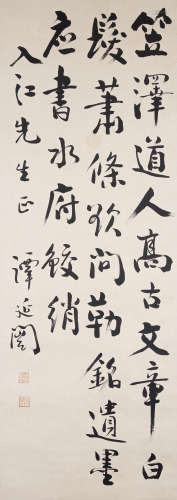 笠澤道人高古文章白
髮蕭條欲問勒銘遺墨
应書水府鮫綃
入江先生正
譚延闓